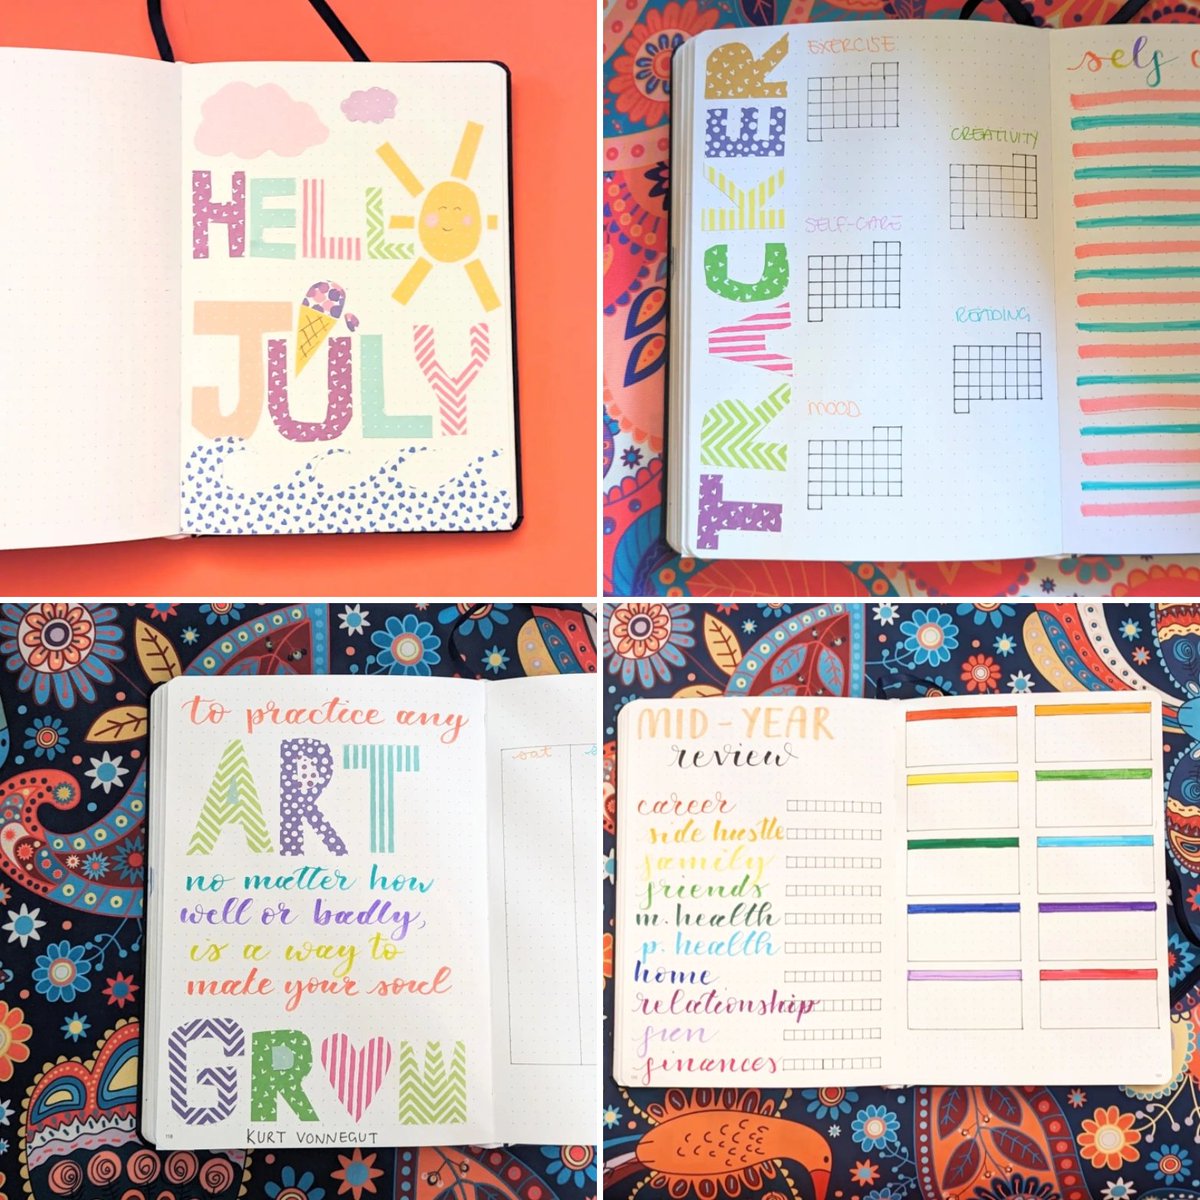 HELLO
JULY
TRACKER
EXERCISE
CREATIVITY
SELF-CARE
READING
MOOD
self c
to practice any
ART
no matter how
well or badly,
is a way to
make your soul
GROW
KURT VONNEGUT
118
sat
s
MID-YEAR
review
career
side hustle
family
friends
m. health
p. health
home
relationship
fun
finances